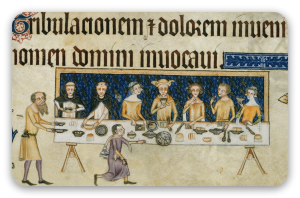 Tribulacionem ⁊ dolorem inueni
nomen domini inuocaui